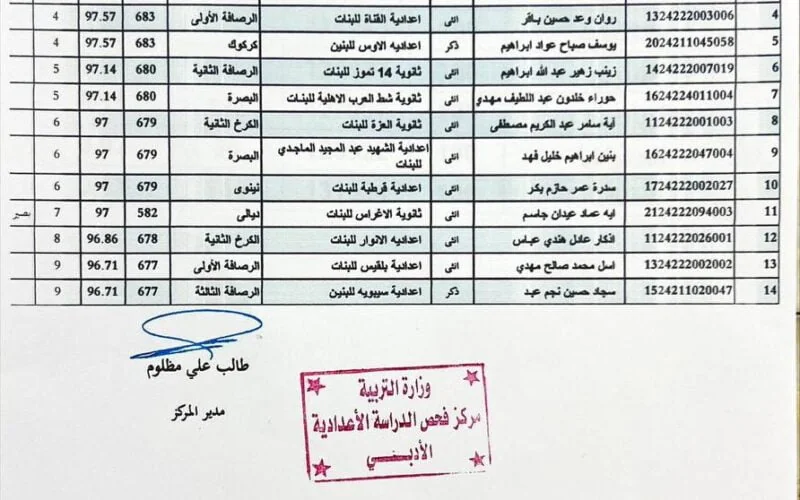 4 1324222003006 روان وعد حسين باقر انثى اعدادية القناة للبنات الرصافة الأولى 683 97.57 4
5 2024211045058 يوسف صباح عواد ابراهيم ذكر اعداديه الاوس للبنين كركوك 683 97.57 4
6 1424222007019 زينب زهير عبد الله ابراهيم انثى ثانوية 14 تموز للبنات الرصافة الثانية 680 97.14 5
7 1624224011004 حوراء خلدون عبد اللطيف مهدي انثى ثانوية شط العرب الاهلية للبنات البصرة 680 97.14 5
8 1124222001003 آية سامر عبد الكريم مصطفى انثى ثانوية العزة للبنات الكرخ الثانية 679 97 6
9 1624222047004 بنين ابراهيم خليل فهد انثى اعدادية الشهيد عبد المجيد الماجدي للبنات البصرة 679 97 6
10 1724222002027 سدرة عمر حازم بكر انثى اعدادية قرطبة للبنات نينوى 679 97 6
11 2124222094003 ايه عماد عيدان جاسم انثى ثانوية الاغراس للبنات ديالى 582 97 7 بصير
12 1124222026001 اذكار عادل هندي عباس انثى اعداديه الانوار للبنات الكرخ الثانية 678 96.86 8
13 1324222002002 اسل محمد صالح مهدي انثى اعدادية بلقيس للبنات الرصافة الأولى 677 96.71 9
14 1524211020047 سجاد حسين نجم عبد ذكر اعدادية سيبويه للبنين الرصافة الثالثة 677 96.71 9
طالب علي مظلوم
مدير المركز
وزارة التربية
مركز فحص الدراسة الأعدادية
الأدبي